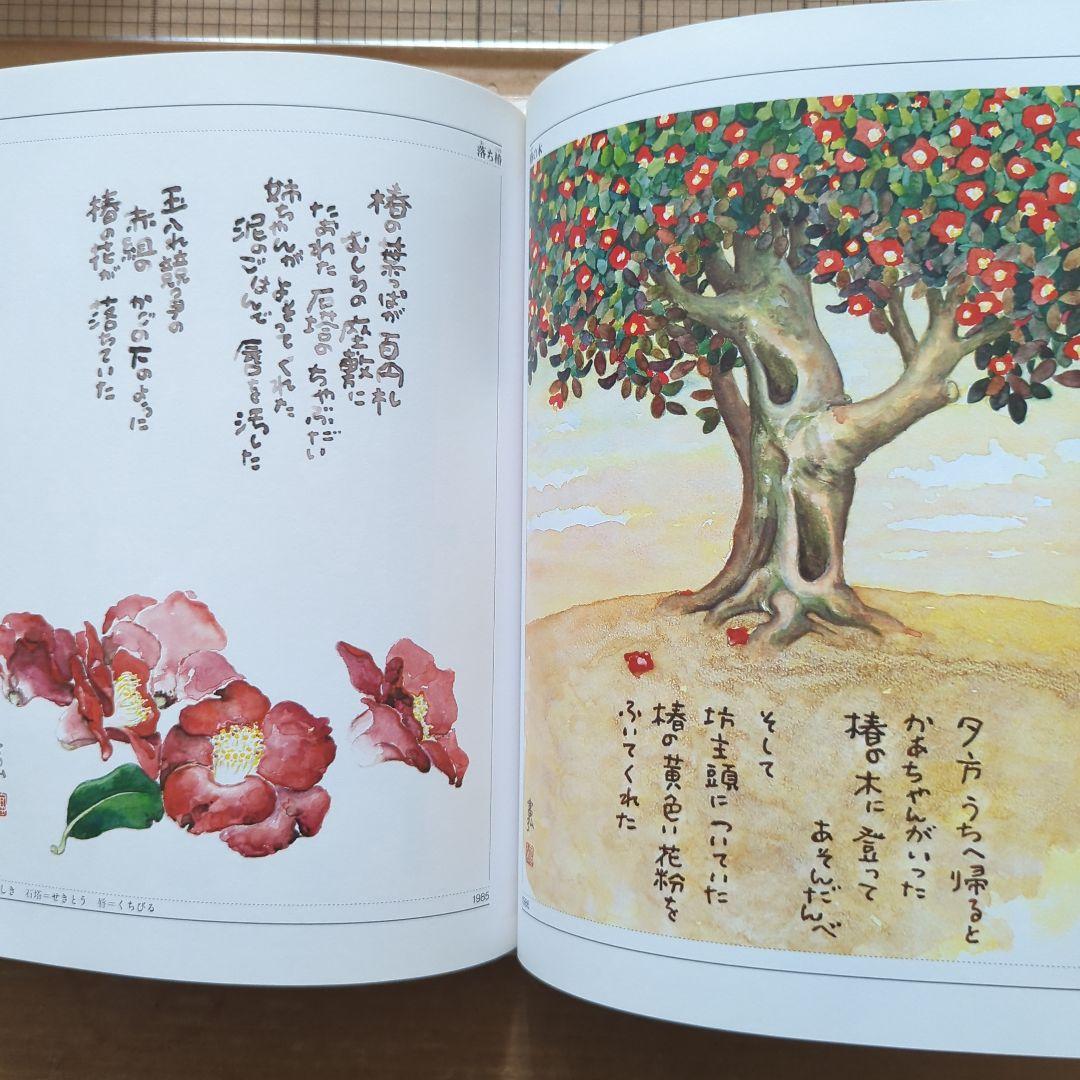 落ち椿
椿の葉っぱが百円札
むしろの座敷に
たおれた石塔のちゃぶだい
姉ちゃんがよそってくれた
泥のごはんで 唇を汚した
玉入れ競争の
赤組の かごの下のように
椿の花が 落ちていた
しき 石塔=せきとう 唇=くちびる
1985
の木
夕方 うちへ帰ると
かあちゃんがいった
椿の木に 登って
あそんだんべ
そして
坊主頭に ついていた
椿の黄色い花粉を
ふいてくれた